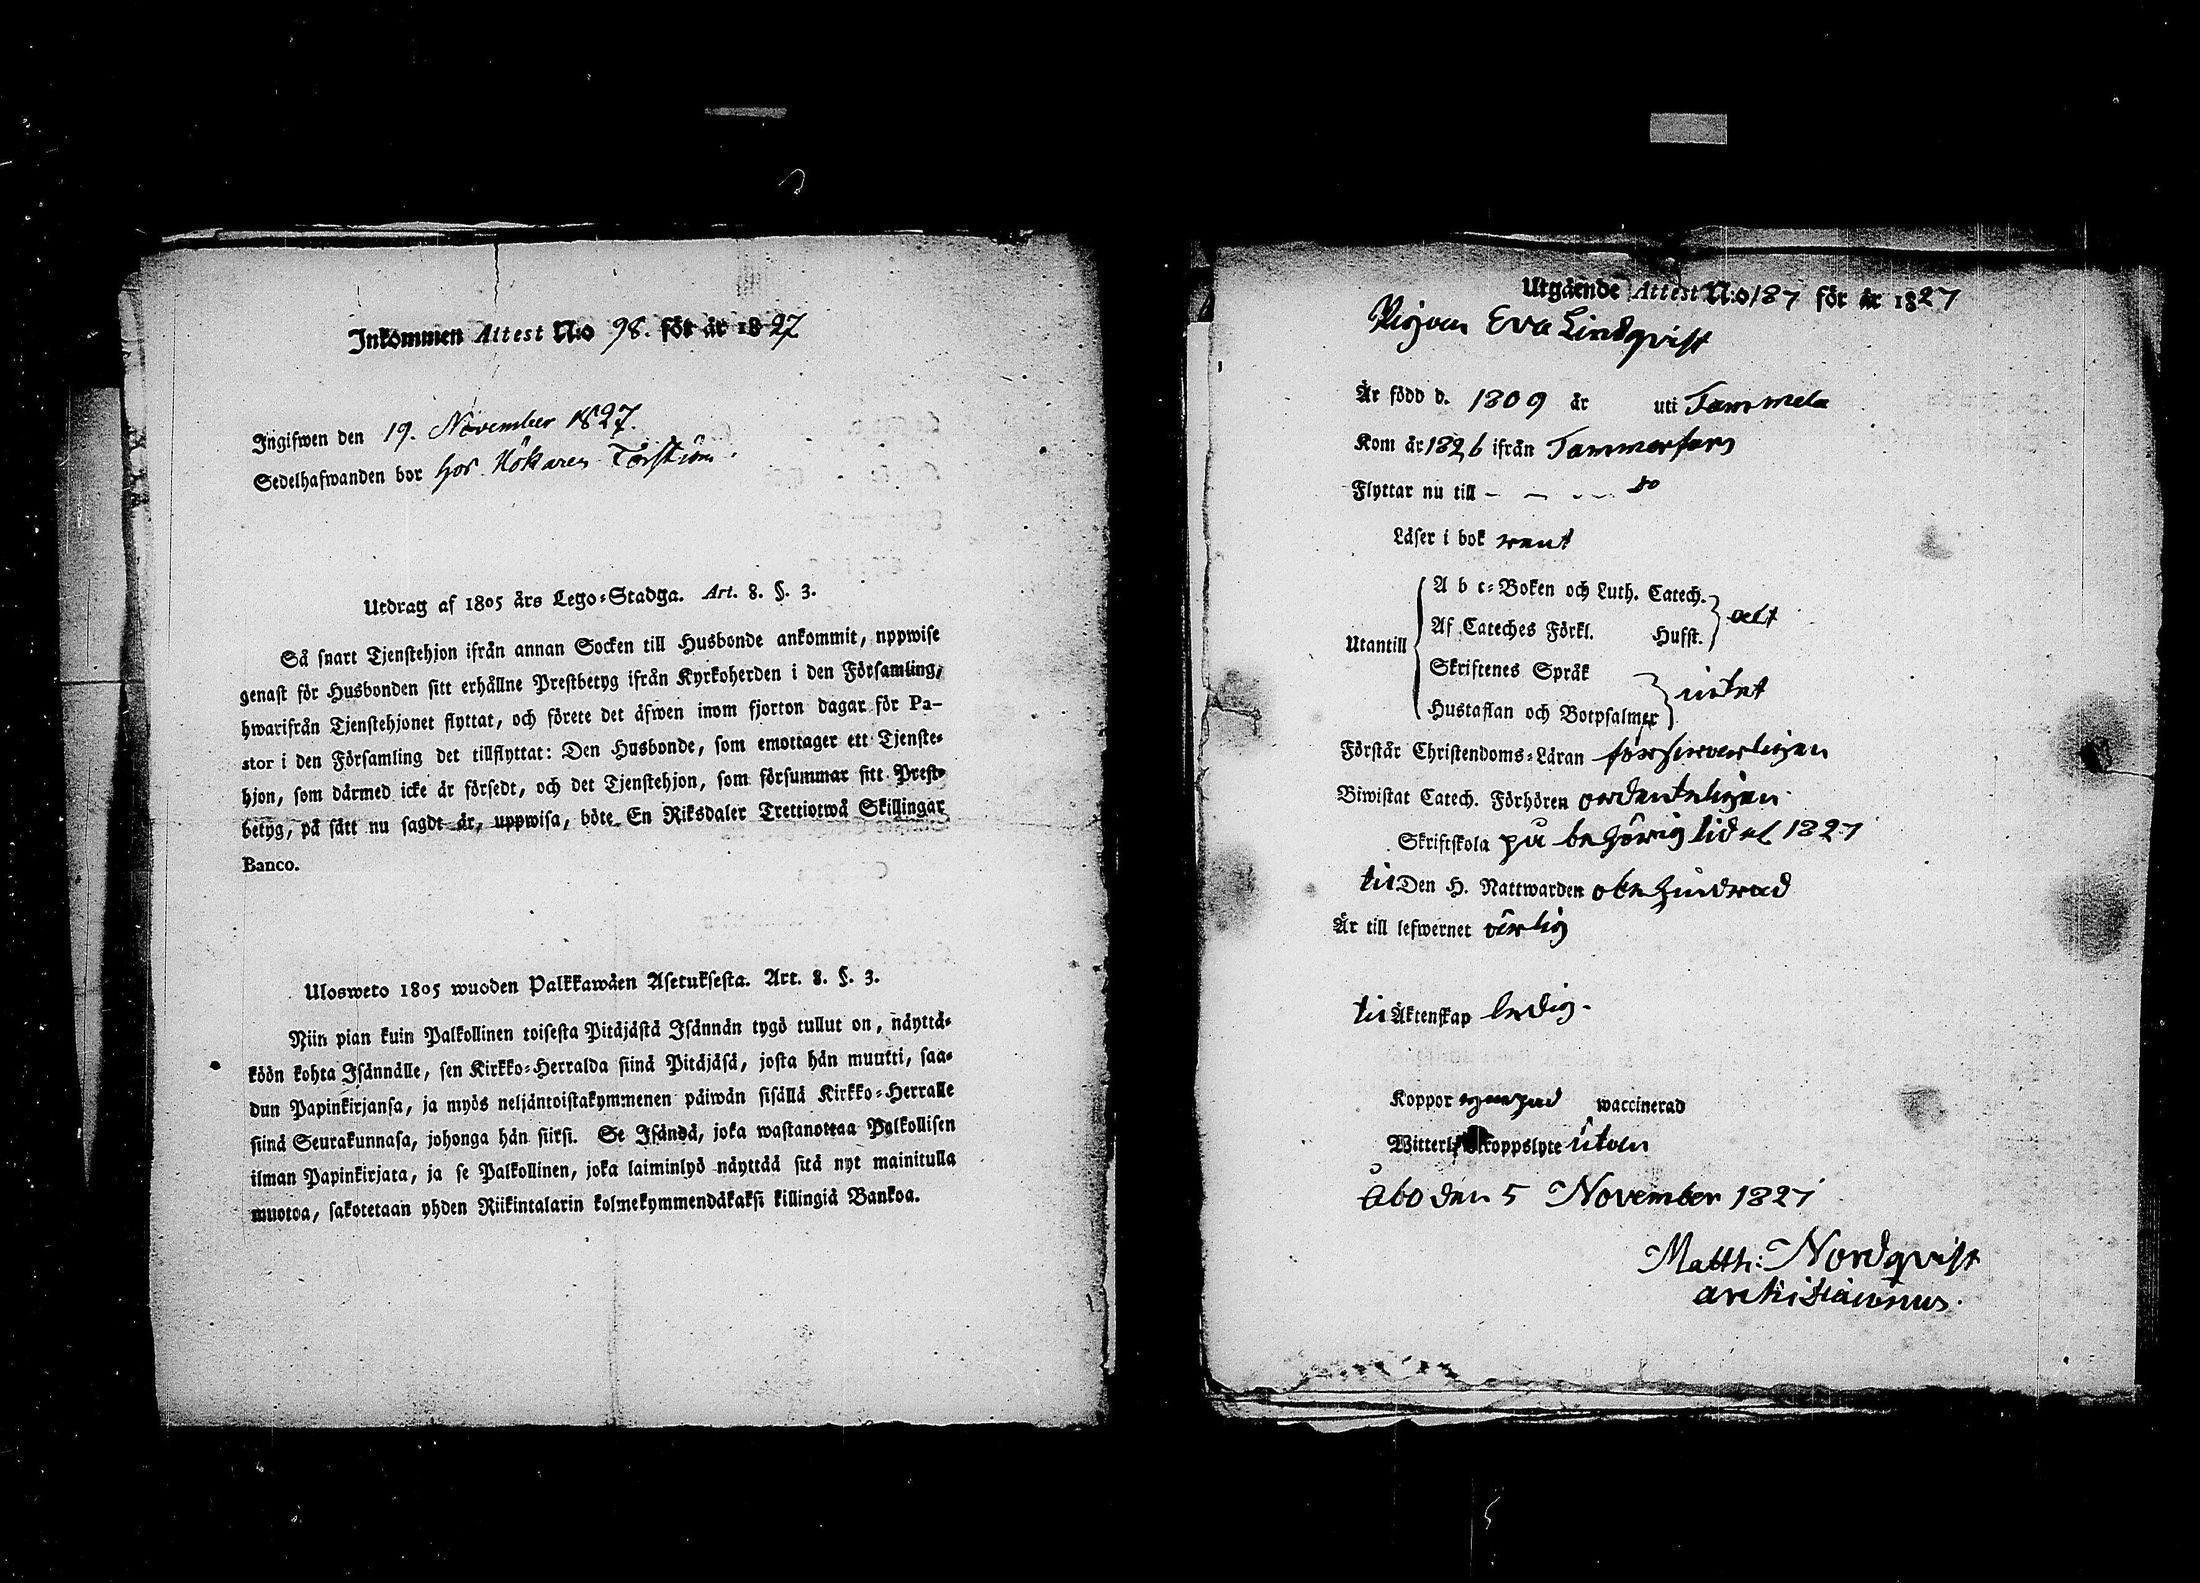 Inkommen Attest N:o 98. för år 1827
Ingifwen den 19. November 1827.
Sedelhafwanden bor hos Hökaren Torström.
Utdrag af 1805 års Lego-Stadga. Art. 8. §. 3.
Så snart Tjenstehjon ifrån annan Socken till Husbonde ankommit, uppwise
genast för Husbonden sitt erhållne Prestbetyg ifrån Kyrkoherden i den Församling,
hwarifrån Tjenstehjonet flyttat, och förete det äfwen inom fjorton dagar för Pa-
stor i den Församling det tillflyttat: Den Husbonde, som emottager ett Tjenste-
hjon, som därmed icke är försedt, och det Tjenstehjon, som försummar sitt Prest-
betyg, på sätt nu sagdt är, uppwisa, böte En Riksdaler Trettiotwå Skillingar
Banco.
Ulosweto 1805 wuoden Palkkawäen Asetuksesta. Art. 8. §. 3.
Niin pian kuin Palkollinen toisesta Pitäjästä Isännän tygö tullut on, näyttä-
köön kohta Isännälle, sen Kirkko-Herralda siinä Pitäjäsä, josta hän muutti, saa-
dun Papinkirjansa, ja myös neljäntoistakymmenen päiwän sisällä Kirkko-Herralle
siinä Seurakunnasa, johonga hän siirsi. Se Isändä, joka wastanottaa Palkollisen
ilman Papinkirjata, ja se Palkollinen, joka laiminlyö näyttää sitä nyt mainitulla
muotoa, sakotetaan yhden Riikintalarin kolmekymmendäkaksi killingiä Bankoa.
Utgående Attest N:o 187 för år 1827
Pigan Eva Lindqvist
Är född d. 1809 år uti Tammela
Kom år 1826 ifrån Tammerfors
Flyttar nu till - - - do
Läser i bok rent
Utantill
A b c-Boken och Luth. Catech.
Af Cateches Förkl. Husst. allt
Skriftenes Språk
Hustaflan och Botpsalmer intet
Förstår Christendoms-Läran försvarligen
Biwistat Catech. Förhören ordenteligen
Skriftskola på behörig tid 1827
till Den H. Nattwarden obehindrad
Är till lefwernet ärlig
till Äktenskap ledig.
Koppor waccinerad
Witterl. Koppslyte utan
Åbo den 5 November 1827
Matth: Nordqvist
archidiaconus.